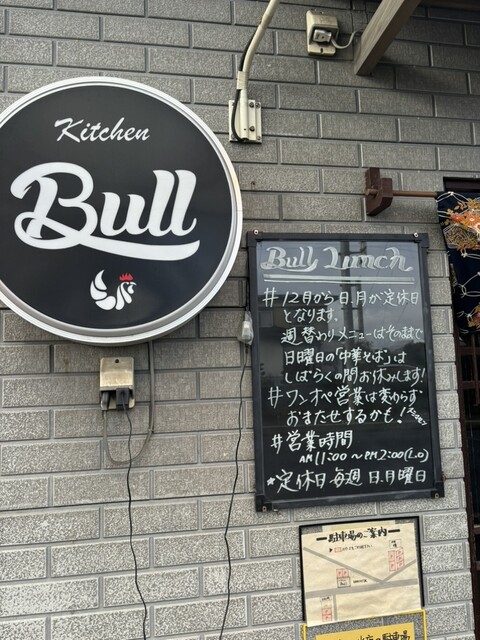 Kitchen
Bull
Bull Lunch
#12月から日、月が定休日
となります。
週替わりメニューはそのままで
日曜日の「中華そば」は
しばらくの間お休みします!
#ワンオペ営業は変わらず
おまたせするかも!
#営業時間
AM11:00～PM2:00(L.O)
★定休日 毎週 日.月曜日
駐車場のご案内
の駐車場